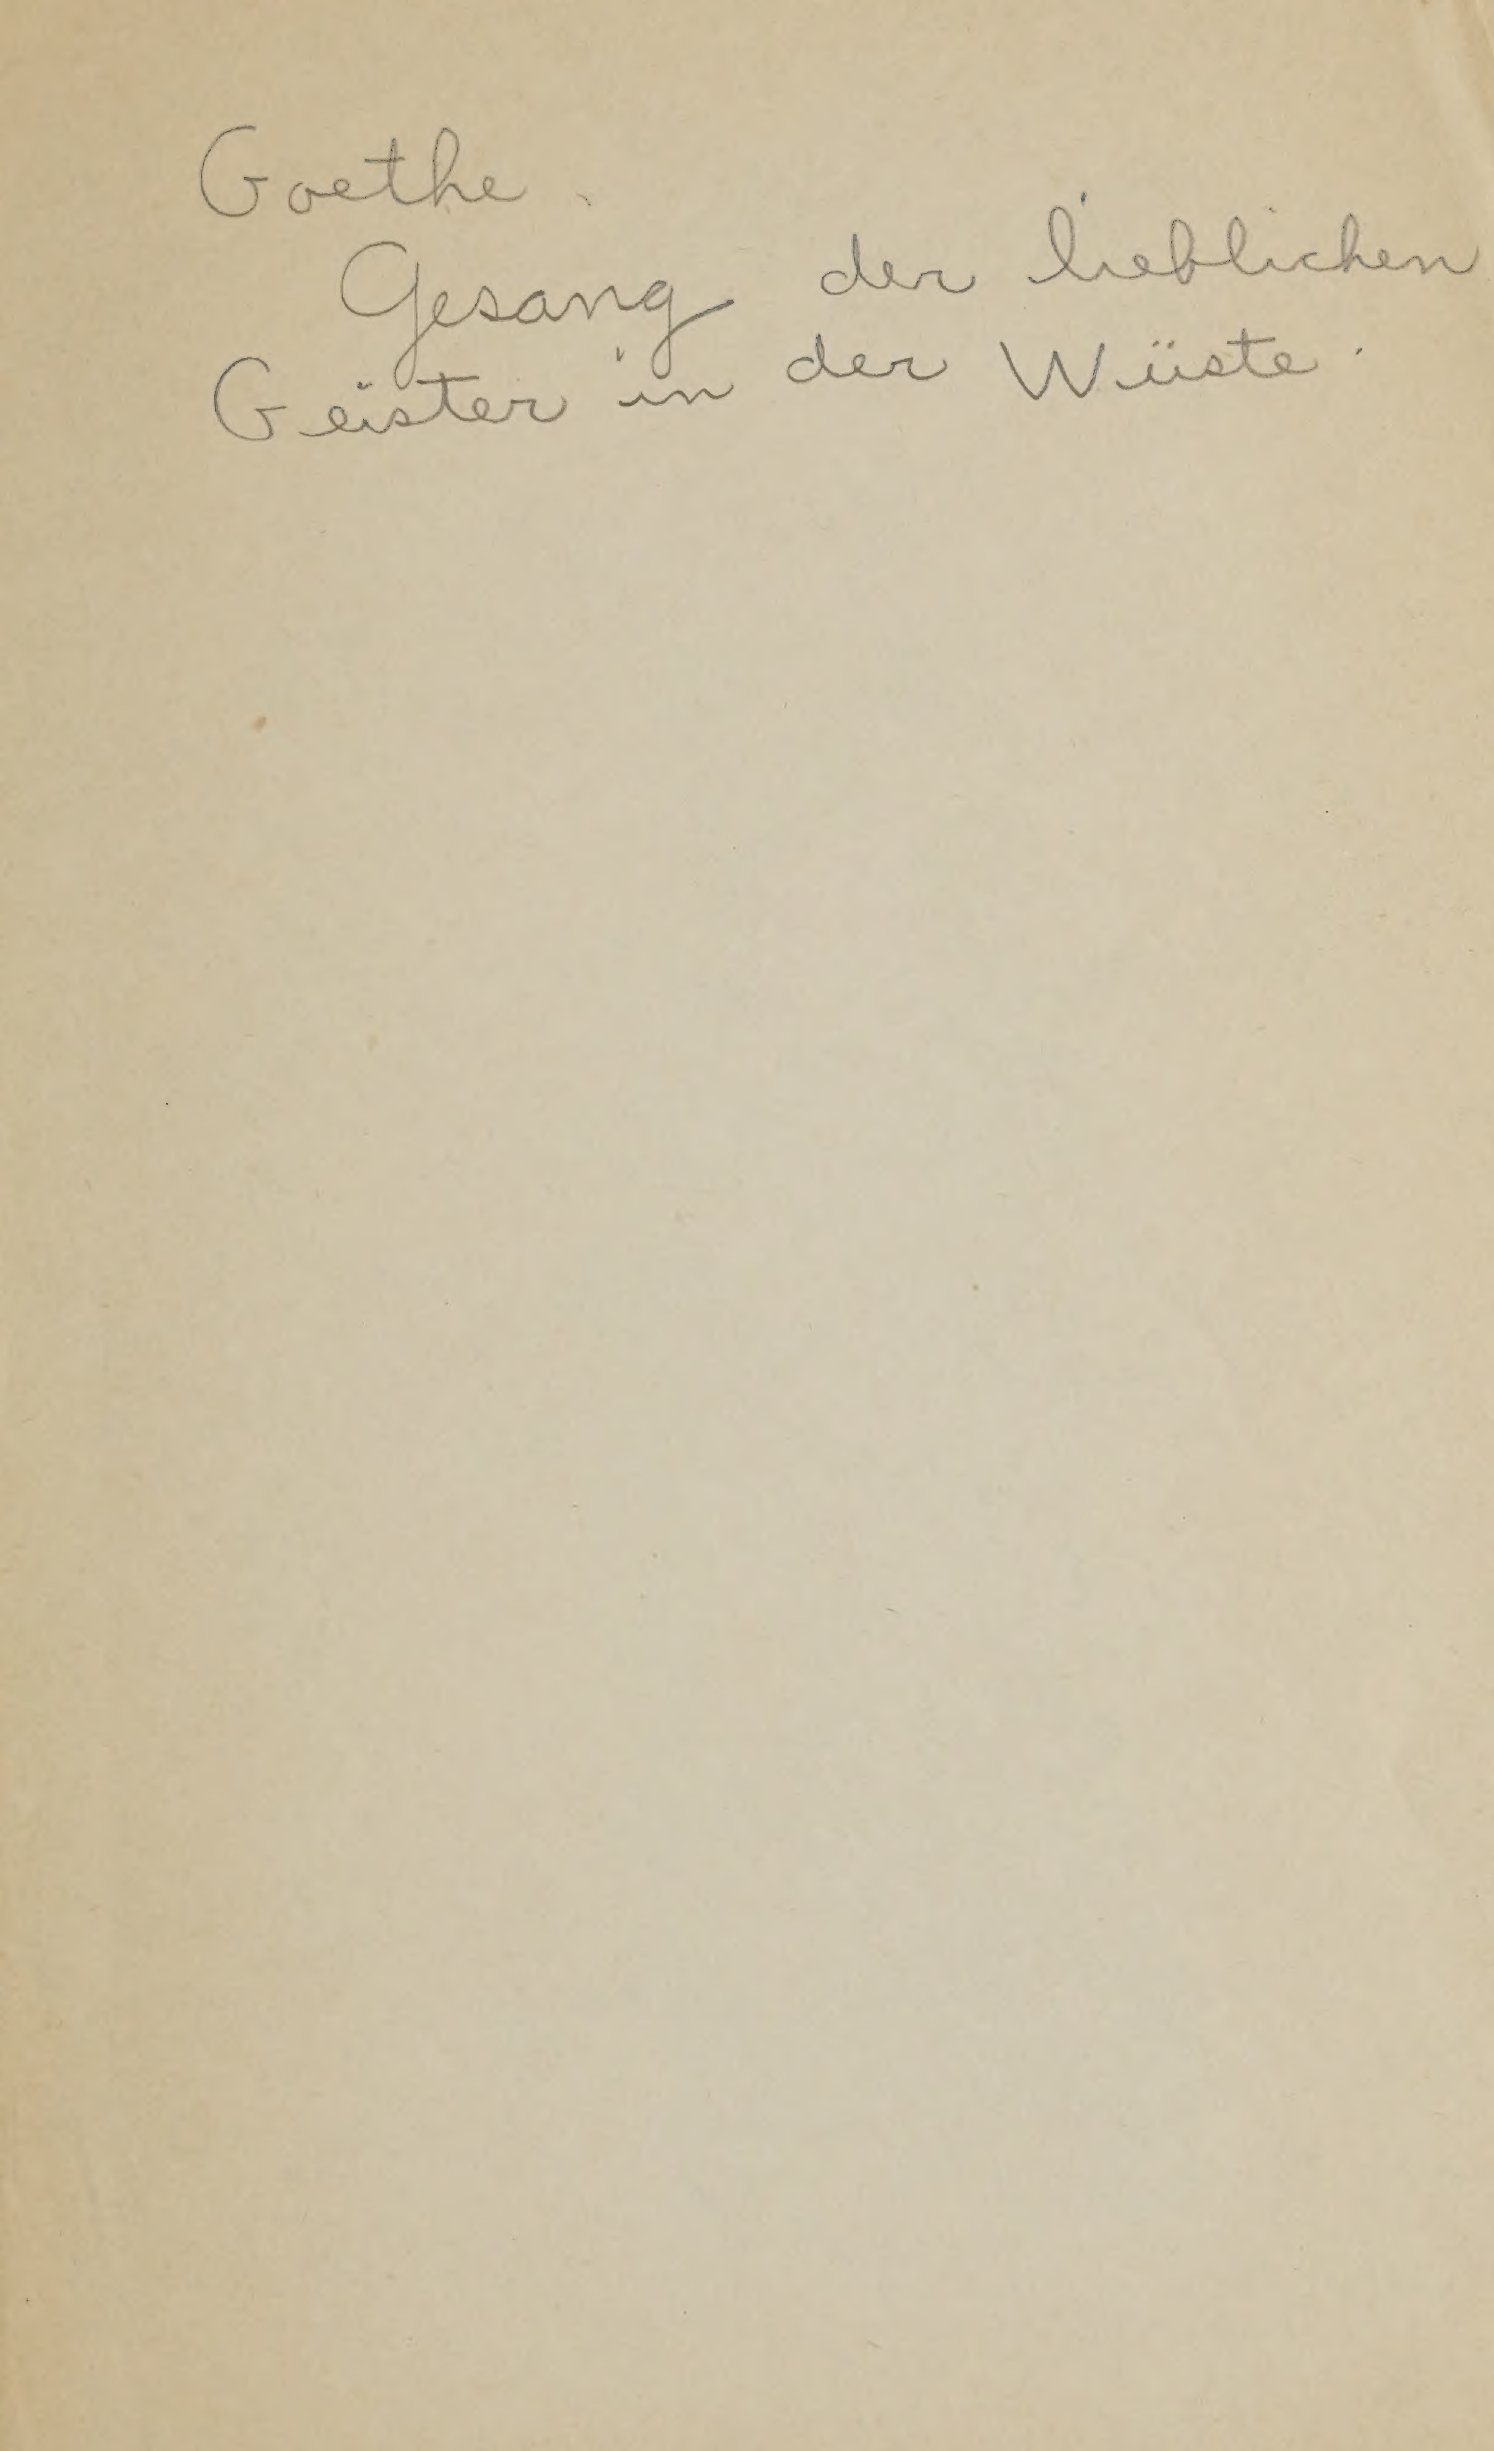 Goethe.
Gesang der lieblichen
Geister in der Wüste.